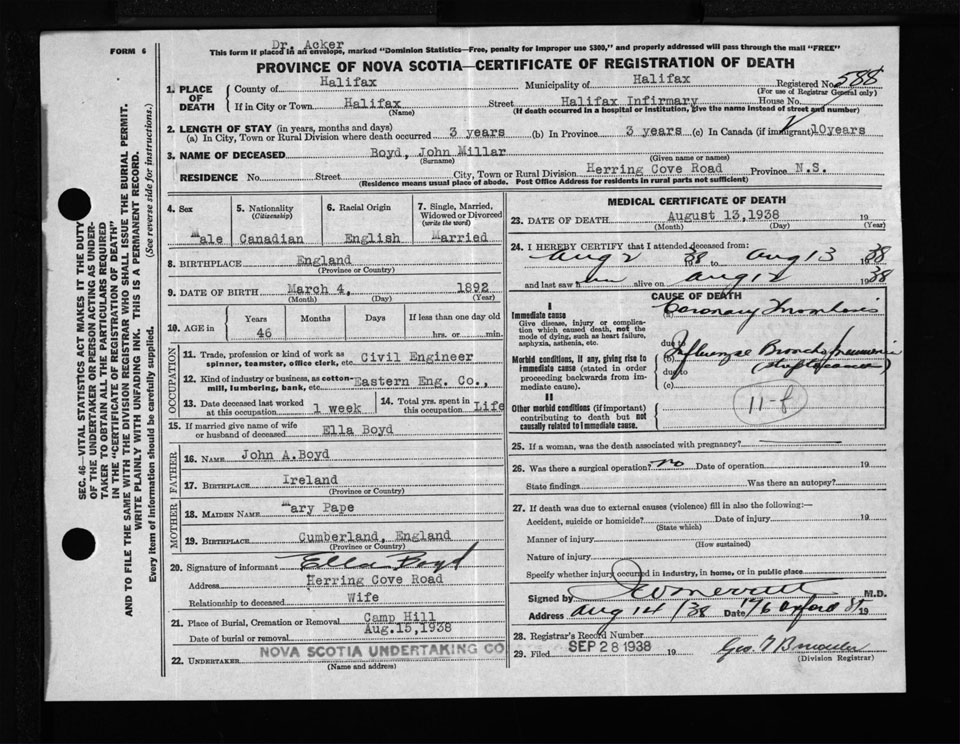 Dr. Acker
FORM 6
This form if placed in an envelope, marked "Dominion Statistics—Free, penalty for improper use $300," and properly addressed will pass through the mail "FREE"
PROVINCE OF NOVA SCOTIA—CERTIFICATE OF REGISTRATION OF DEATH
1. PLACE OF DEATH
County of Halifax Municipality of Halifax Registered No. 588
(For use of Registrar General only)
If in City or Town Halifax Street Halifax Infirmary House No.
(Name) (If death occurred in a hospital or institution, give the name instead of street and number)
2. LENGTH OF STAY (in years, months and days)
(a) In City, Town or Rural Division where death occurred 3 years (b) In Province 3 years (c) In Canada (if immigrant) 10years
3. NAME OF DECEASED Boyd, John Millar
(Surname) (Given name or names)
RESIDENCE No. Street City, Town or Rural Division Herring Cove Road Province N.S.
(Residence means usual place of abode. Post Office Address for residents in rural parts not sufficient)
4. Sex
Male
5. Nationality
(Citizenship)
Canadian
6. Racial Origin
English
7. Single, Married, Widowed or Divorced
(write the word)
Married
8. BIRTHPLACE England
(Province or Country)
9. DATE OF BIRTH March 4, 1892
(Month) (Day) (Year)
10. AGE in
Years Months Days If less than one day old
46 hrs. or min.
OCCUPATION
11. Trade, profession or kind of work as spinner, teamster, office clerk, etc. Civil Engineer
12. Kind of industry or business, as cotton-mill, lumbering, bank, etc. Eastern Eng. Co.,
13. Date deceased last worked at this occupation 1 week
14. Total yrs. spent in this occupation Life
15. If married give name of wife or husband of deceased Ella Boyd
FATHER
16. NAME John A.Boyd
17. BIRTHPLACE Ireland
(Province or Country)
MOTHER
18. MAIDEN NAME Mary Pape
19. BIRTHPLACE Cumberland, England
(Province or Country)
20. Signature of informant Ella Boyd
Address Herring Cove Road
Relationship to deceased Wife
21. Place of Burial, Cremation or Removal Camp Hill
Date of burial or removal Aug.15,1938
22. UNDERTAKER NOVA SCOTIA UNDERTAKING CO
(Name and address)
MEDICAL CERTIFICATE OF DEATH
23. DATE OF DEATH August 13,1938 19
(Month) (Day) (Year)
24. I HEREBY CERTIFY that I attended deceased from:
Aug 2 38 to Aug 13 1938
and last saw h im alive on Aug 12 1938
CAUSE OF DEATH
I
Immediate cause
Give disease, injury or complication which caused death, not the mode of dying, such as heart failure, asphyxia, asthenia, etc.
(a) Coronary Thrombosis
due to
Morbid conditions, if any, giving rise to immediate cause (stated in order proceeding backwards from immediate cause).
Influenzae Bronchopneumonia
due to
(c)
II
Other morbid conditions (if important) contributing to death but not causally related to immediate cause.
11-f
25. If a woman, was the death associated with pregnancy?
26. Was there a surgical operation? no Date of operation 19
State findings Was there an autopsy?
27. If death was due to external causes (violence) fill in also the following:—
Accident, suicide or homicide? Date of injury 19
(State which)
Manner of injury
(How sustained)
Nature of injury
Specify whether injury occured in industry, in home, or in public place
Signed by M.D.
Address Aug 14/38 Date 176 Oxford St 19
28. Registrar's Record Number
29. Filed SEP 28 1938 19
(Division Registrar)
SEC. 46—VITAL STATISTICS ACT MAKES IT THE DUTY
OF THE UNDERTAKER OR PERSON ACTING AS UNDER-
TAKER TO OBTAIN ALL THE PARTICULARS REQUIRED
IN THE "CERTIFICATE OF REGISTRATION OF DEATH"
AND TO FILE THE SAME WITH THE DIVISION REGISTRAR WHO SHALL ISSUE THE BURIAL PERMIT.
WRITE PLAINLY WITH UNFADING INK. THIS IS A PERMANENT RECORD.
Every item of information should be carefully supplied. (See reverse side for instructions.)